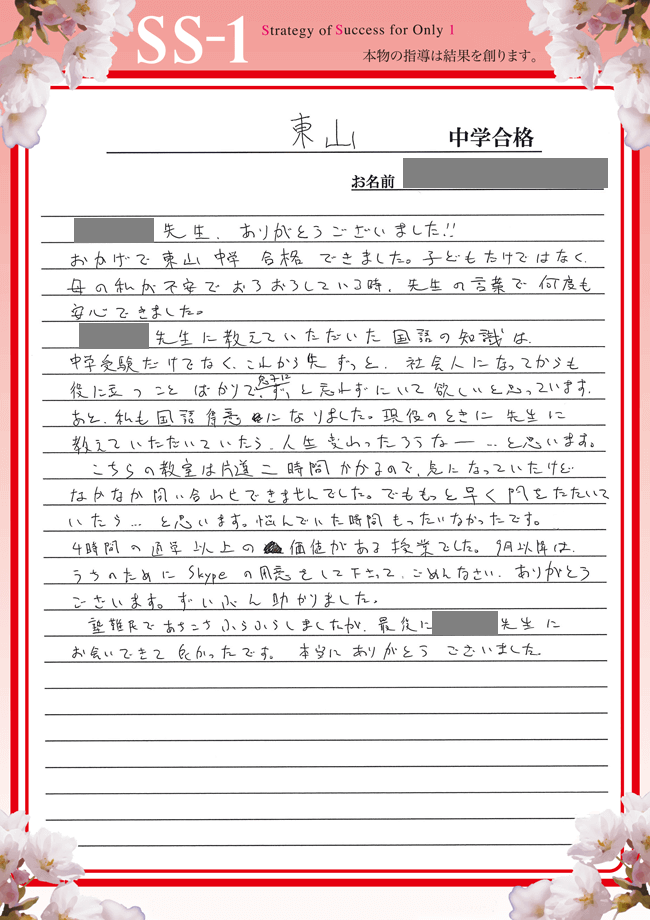 SS-1
Strategy of Success for Only 1
本物の指導は結果を創ります。
東山 中学合格
お名前
先生、ありがとうございました!!
おかげで東山中学合格できました。子どもだけではなく、
母の私が不安でおろおろしている時、先生の言葉で何度も
安心できました。
先生に教えていただいた国語の知識は、
中学受験だけでなく、これから先ずっと、社会人になってからも
役に立つことばかりで、息子にはずっと忘れずにいて欲しいと思っています。
あと、私も国語得意になりました。現役のときに先生に
教えていただいていたら、人生変わったろうなー…と思います。
こちらの教室は片道二時間かかるので、気になっていたけど
なかなか問い合わせできませんでした。でももっと早く門をたたいて
いたら…と思います。悩んでいた時間もったいなかったです。
4時間の通学以上の価値がある授業でした。9月以降は、
うちのためにSkypeの用意をして下さって、ごめんなさい、ありがとう
ございます。ずいぶん助かりました。
塾難民であちこちふらふらしましたが、最後に先生に
お会いできて良かったです。本当にありがとうございました。